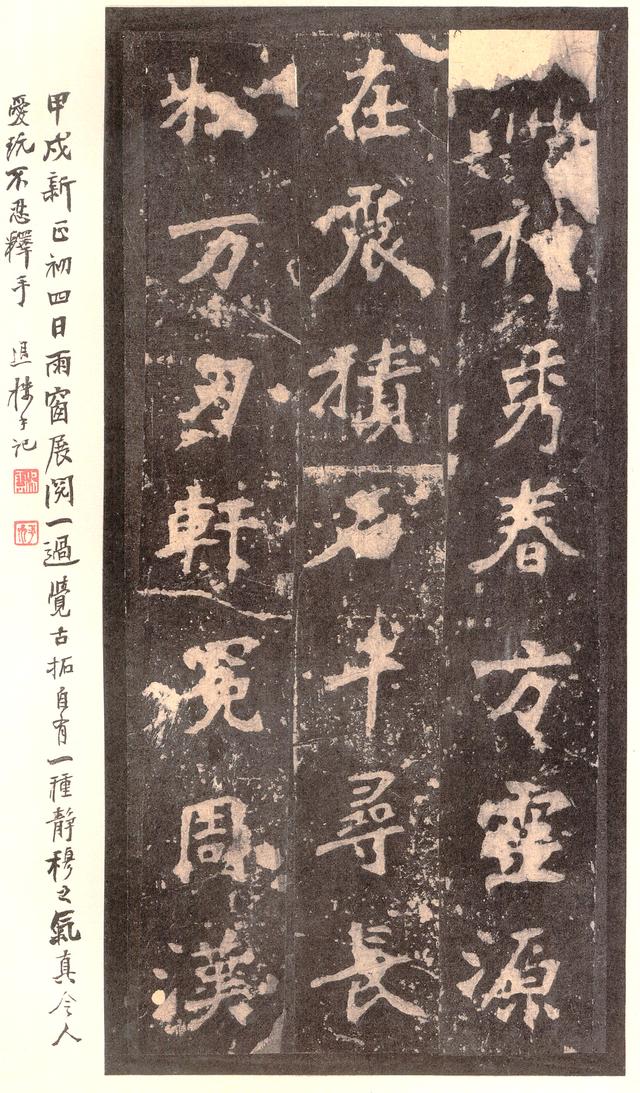 神秀春方靈源
在震積石千尋長
松万刃軒冕周漢
甲戌新正初四日雨窗展閱一過覺古拓自有一種靜穆之氣真令人
愛玩不忍釋手 退樓記